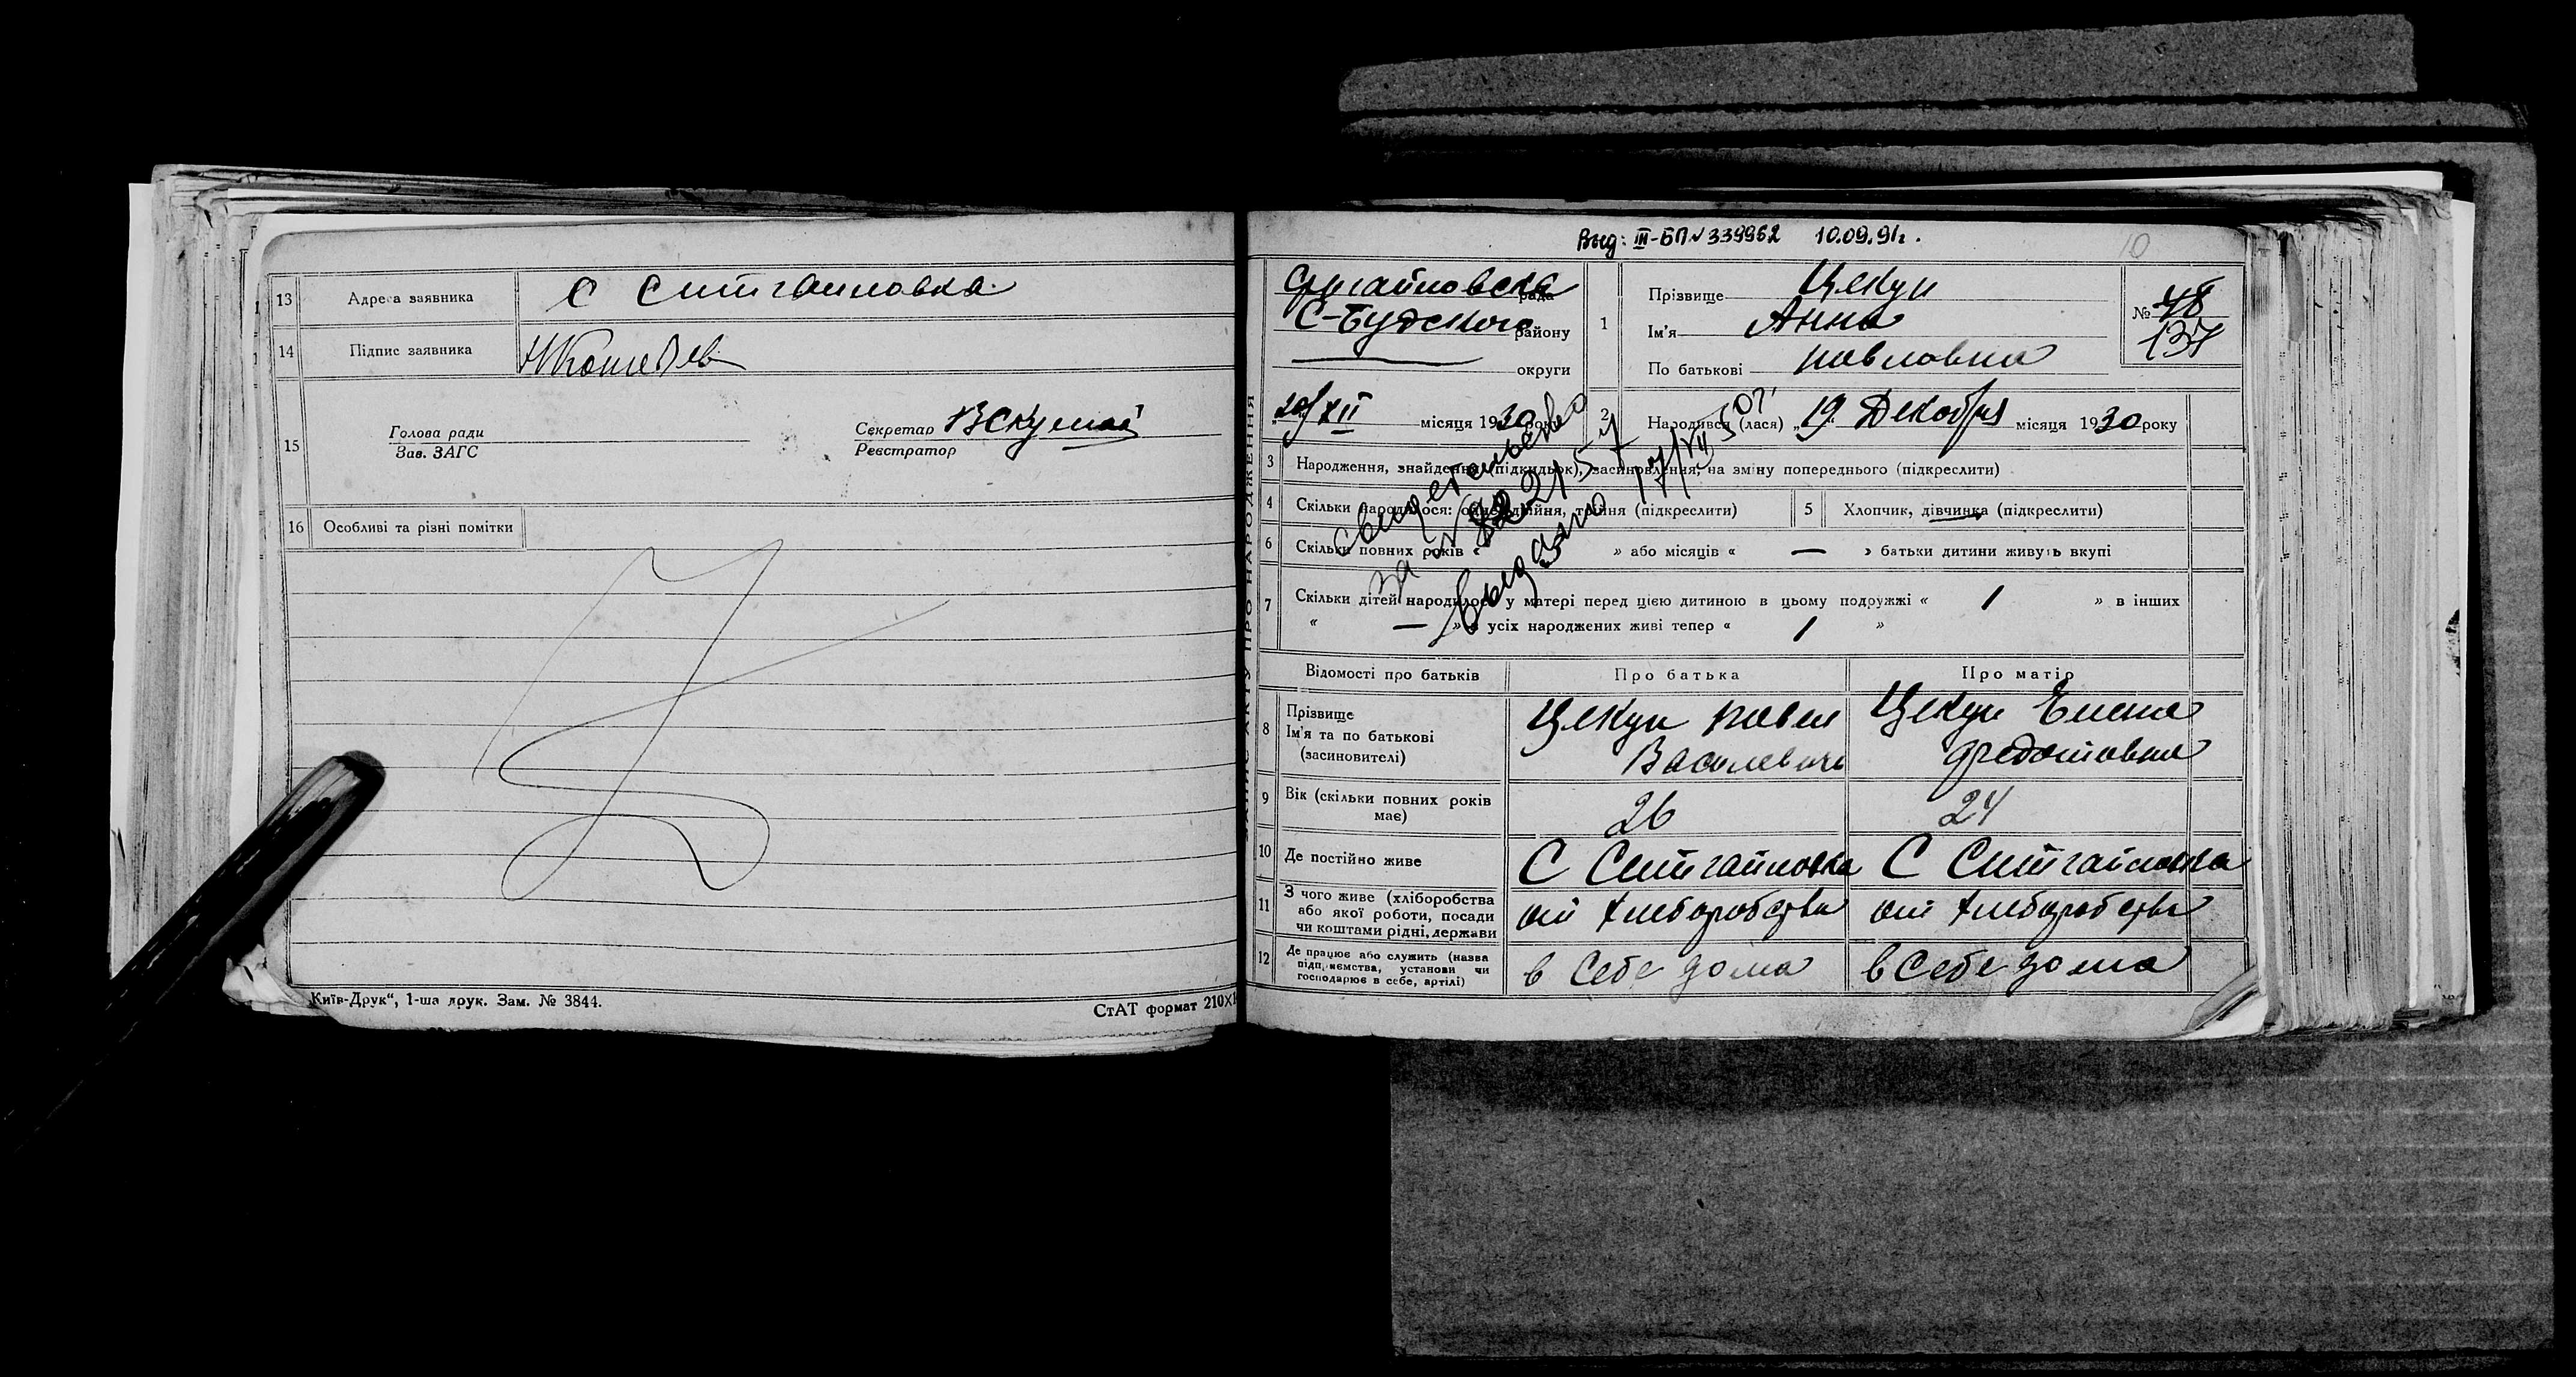 13 Адреса заявника С Ситгайловка
14 Підпис заявника
15 Голова ради
Зав. ЗАГС
Секретар
Реєстратор
16 Особливі та різні помітки
Київ-Друк“, 1-ша друк. Зам. № 3844.
СтАТ формат 210×
Выд: III-БП № 339962 10.09.91г.
10
рада
С-Будского району
округи
20/XII місяця 1930 року
1 Прізвище Цекун
Ім'я Анна
По батькові Павловна
№ 48
137
2 Народився (лася) „19“ Декабря місяця 1930 року
3 Народження, знайдення (підкидьок), засиновлення, на зміну попереднього (підкреслити)
4 Скільки народилося: одне, двійня, трійня (підкреслити) 5 Хлопчик, дівчинка (підкреслити)
6 Скільки повних років « » або місяців « — » батьки дитини живуть вкупі
7 Скільки дітей народилося у матері перед цією дитиною в цьому подружжі « 1 » в інших
« — » з усіх народжених живі тепер « 1 »
свидетельство
за №
выдано 17/VII 5
ЗАПИС АКТУ ПРО НАРОДЖЕННЯ
Відомості про батьків Про батька Про матір
8 Прізвище
Ім'я та по батькові
(засиновителі)
Цекун Павел
Василевич
Цекун Елена
Федотовна
9 Вік (скільки повних років
має)
26 24
10 Де постійно живе С Ситгайловка С Ситгайловка
11 З чого живе (хліборобства
або якої роботи, посади
чи коштами рідні, держави
от хлеборобства от хлеборобства
12 Де працює або служить (назва
підприємства, установи чи
господарює в себе, артілі)
в себе дома в себе дома